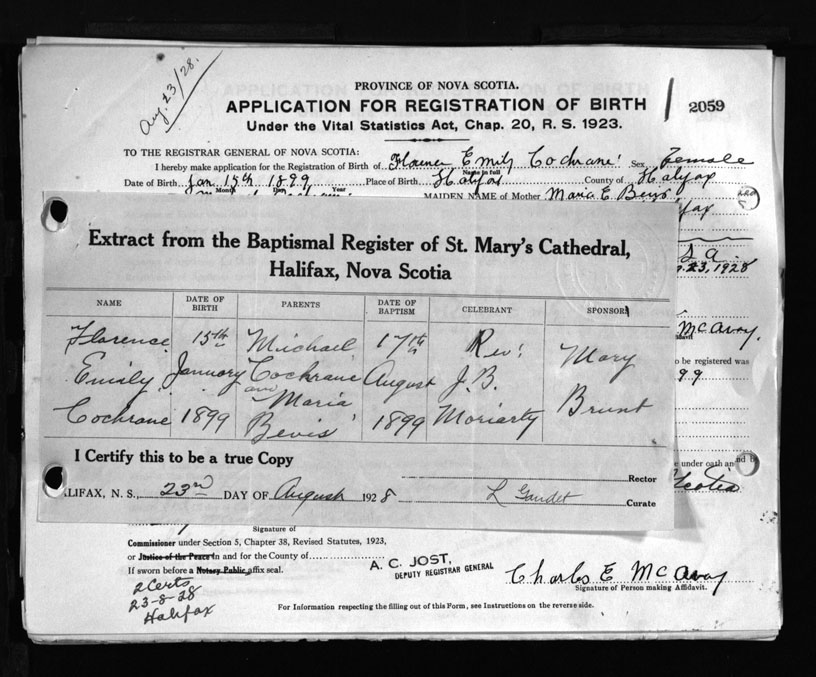 Aug. 23/28.
PROVINCE OF NOVA SCOTIA.
APPLICATION FOR REGISTRATION OF BIRTH
2059
Under the Vital Statistics Act, Chap. 20, R. S. 1923.
TO THE REGISTRAR GENERAL OF NOVA SCOTIA:
I hereby make application for the Registration of Birth of Florence Emily Cochrane Sex Female
Name in full
Date of Birth Jan 15th 1899 Place of Birth Halifax County of Halifax
Month Day Year
MAIDEN NAME of Mother Maria E. Bevis
23, 1928
Extract from the Baptismal Register of St. Mary's Cathedral,
Halifax, Nova Scotia
NAME DATE OF BIRTH PARENTS DATE OF BAPTISM CELEBRANT SPONSORS
Florence 15th Michael 17th Rev. Mary
Emily January Cochrane August J.B.
and
Cochrane 1899 Maria 1899 Moriarty Brunt
Bevis
McAvoy.
to be registered was
99
I Certify this to be a true Copy
Rector
HALIFAX, N. S., 23rd DAY OF August 1928 L Gaudet Curate
under oath and
Scotia
Signature of
Commissioner under Section 5, Chapter 38, Revised Statutes, 1923,
or Justice of the Peace in and for the County of
If sworn before a Notary Public, affix seal.
A. C. JOST,
DEPUTY REGISTRAR GENERAL
Charles E McAvoy
Signature of Person making Affidavit.
2 Certs
23-8-28
Halifax
For Information respecting the filling out of this Form, see Instructions on the reverse side.